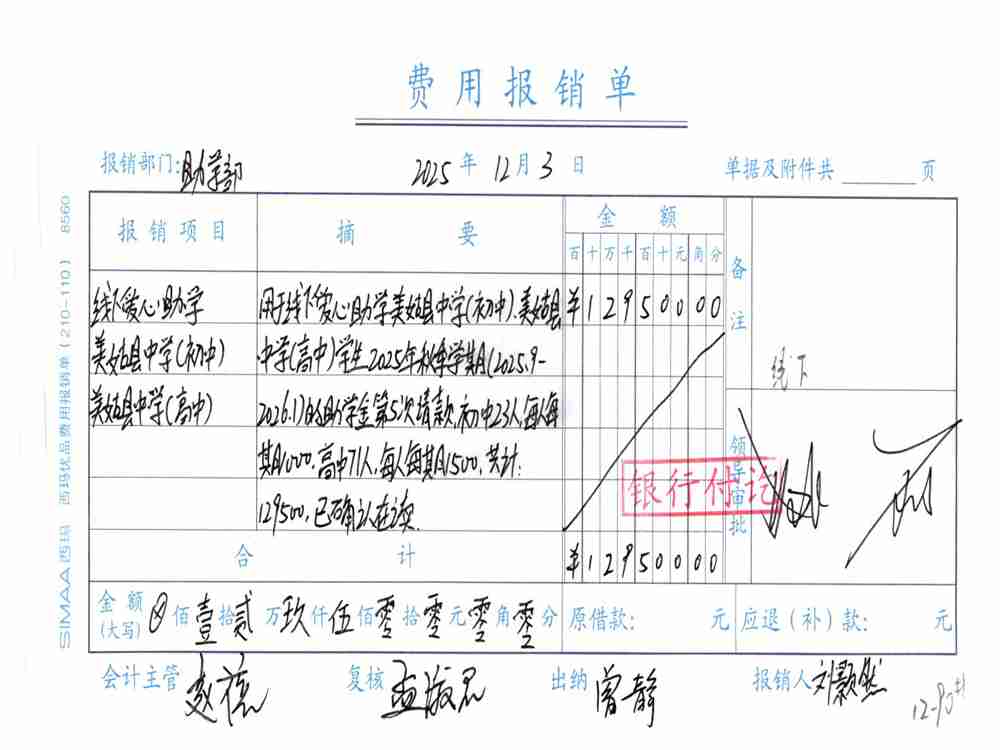 费用报销单
报销部门:助学部 2025年12月3日 单据及附件共 页
报销项目 摘要 金额 备注
百十万千百十元角分
线下爱心助学 用于线下爱心助学美姑县中学(初中).美姑县 ¥12950000
美姑县中学(初中) 中学(高中)学生2025年秋季学期(2025.9-
美姑县中学(高中) 2026.1)的助学金第5次请款,初中23人,每人每
期1000,高中71人,每人每期1500,共计:
129500,已确认在读.
线下
领导审批
银行付讫
合计 ¥12950000
金额(大写) ⊗佰壹拾贰万玖仟伍佰零拾零元零角零分 原借款: 元 应退(补)款: 元
会计主管 复核 出纳 曾静 报销人 刘颢然
12-90#
SIMAA西玛 西玛优品费用报销单(210-110) 8560